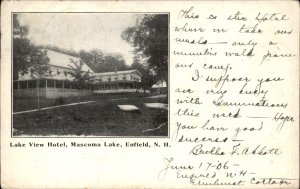 This is the Hotel
where we take our
meals - only a
minutes walk from
our camp.
I suppose you
are very busy
with examinations
this week - Hope
you have good
success.
Lake View Hotel, Mascoma Lake, Enfield, N. H.
Bertha L. Abbott
June 17-06 -
Enfield N.H -
Elmhurst Cottage